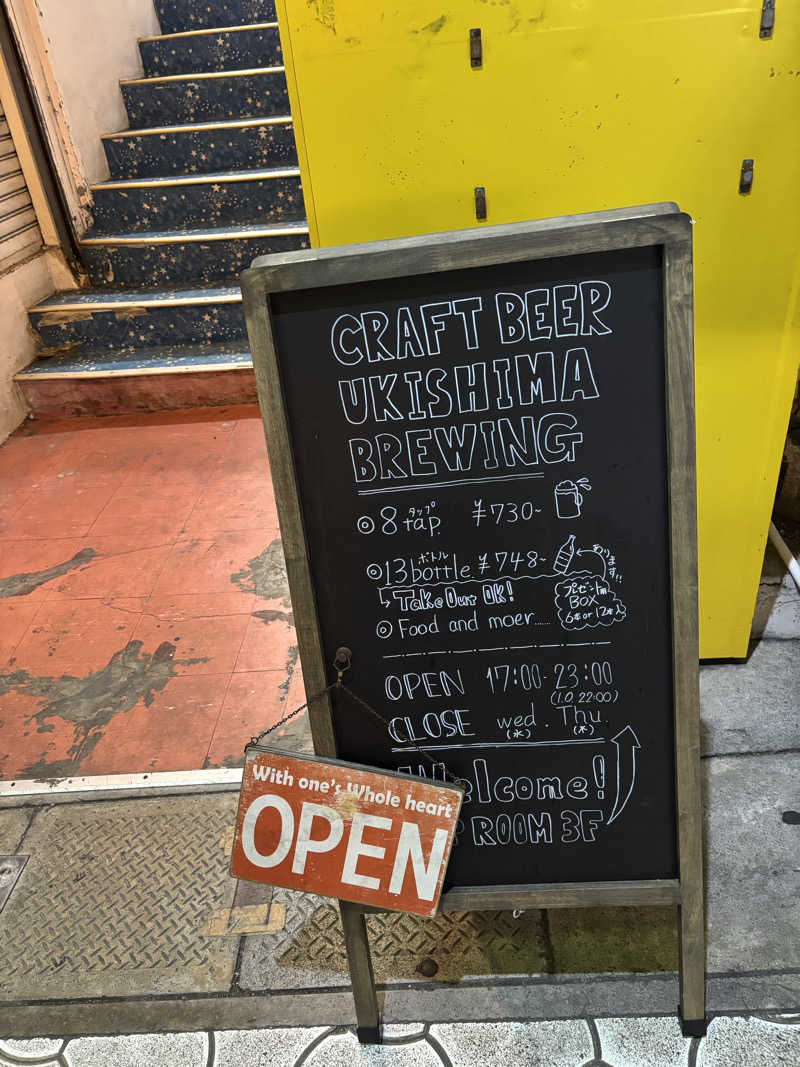 CRAFT BEER
UKISHIMA
BREWING
タップ
◎8 tap. ¥730~
ボトル
◎13 bottle. ¥748~
あります!!
Take Out OK!
プレゼント用
BOX
6本 or 12本入
◎ Food and moer......
OPEN 17:00-23:00
(l.o. 22:00)
CLOSE wed. Thu.
(水) (木)
Welcome!
ROOM 3F
With one's Whole heart
OPEN